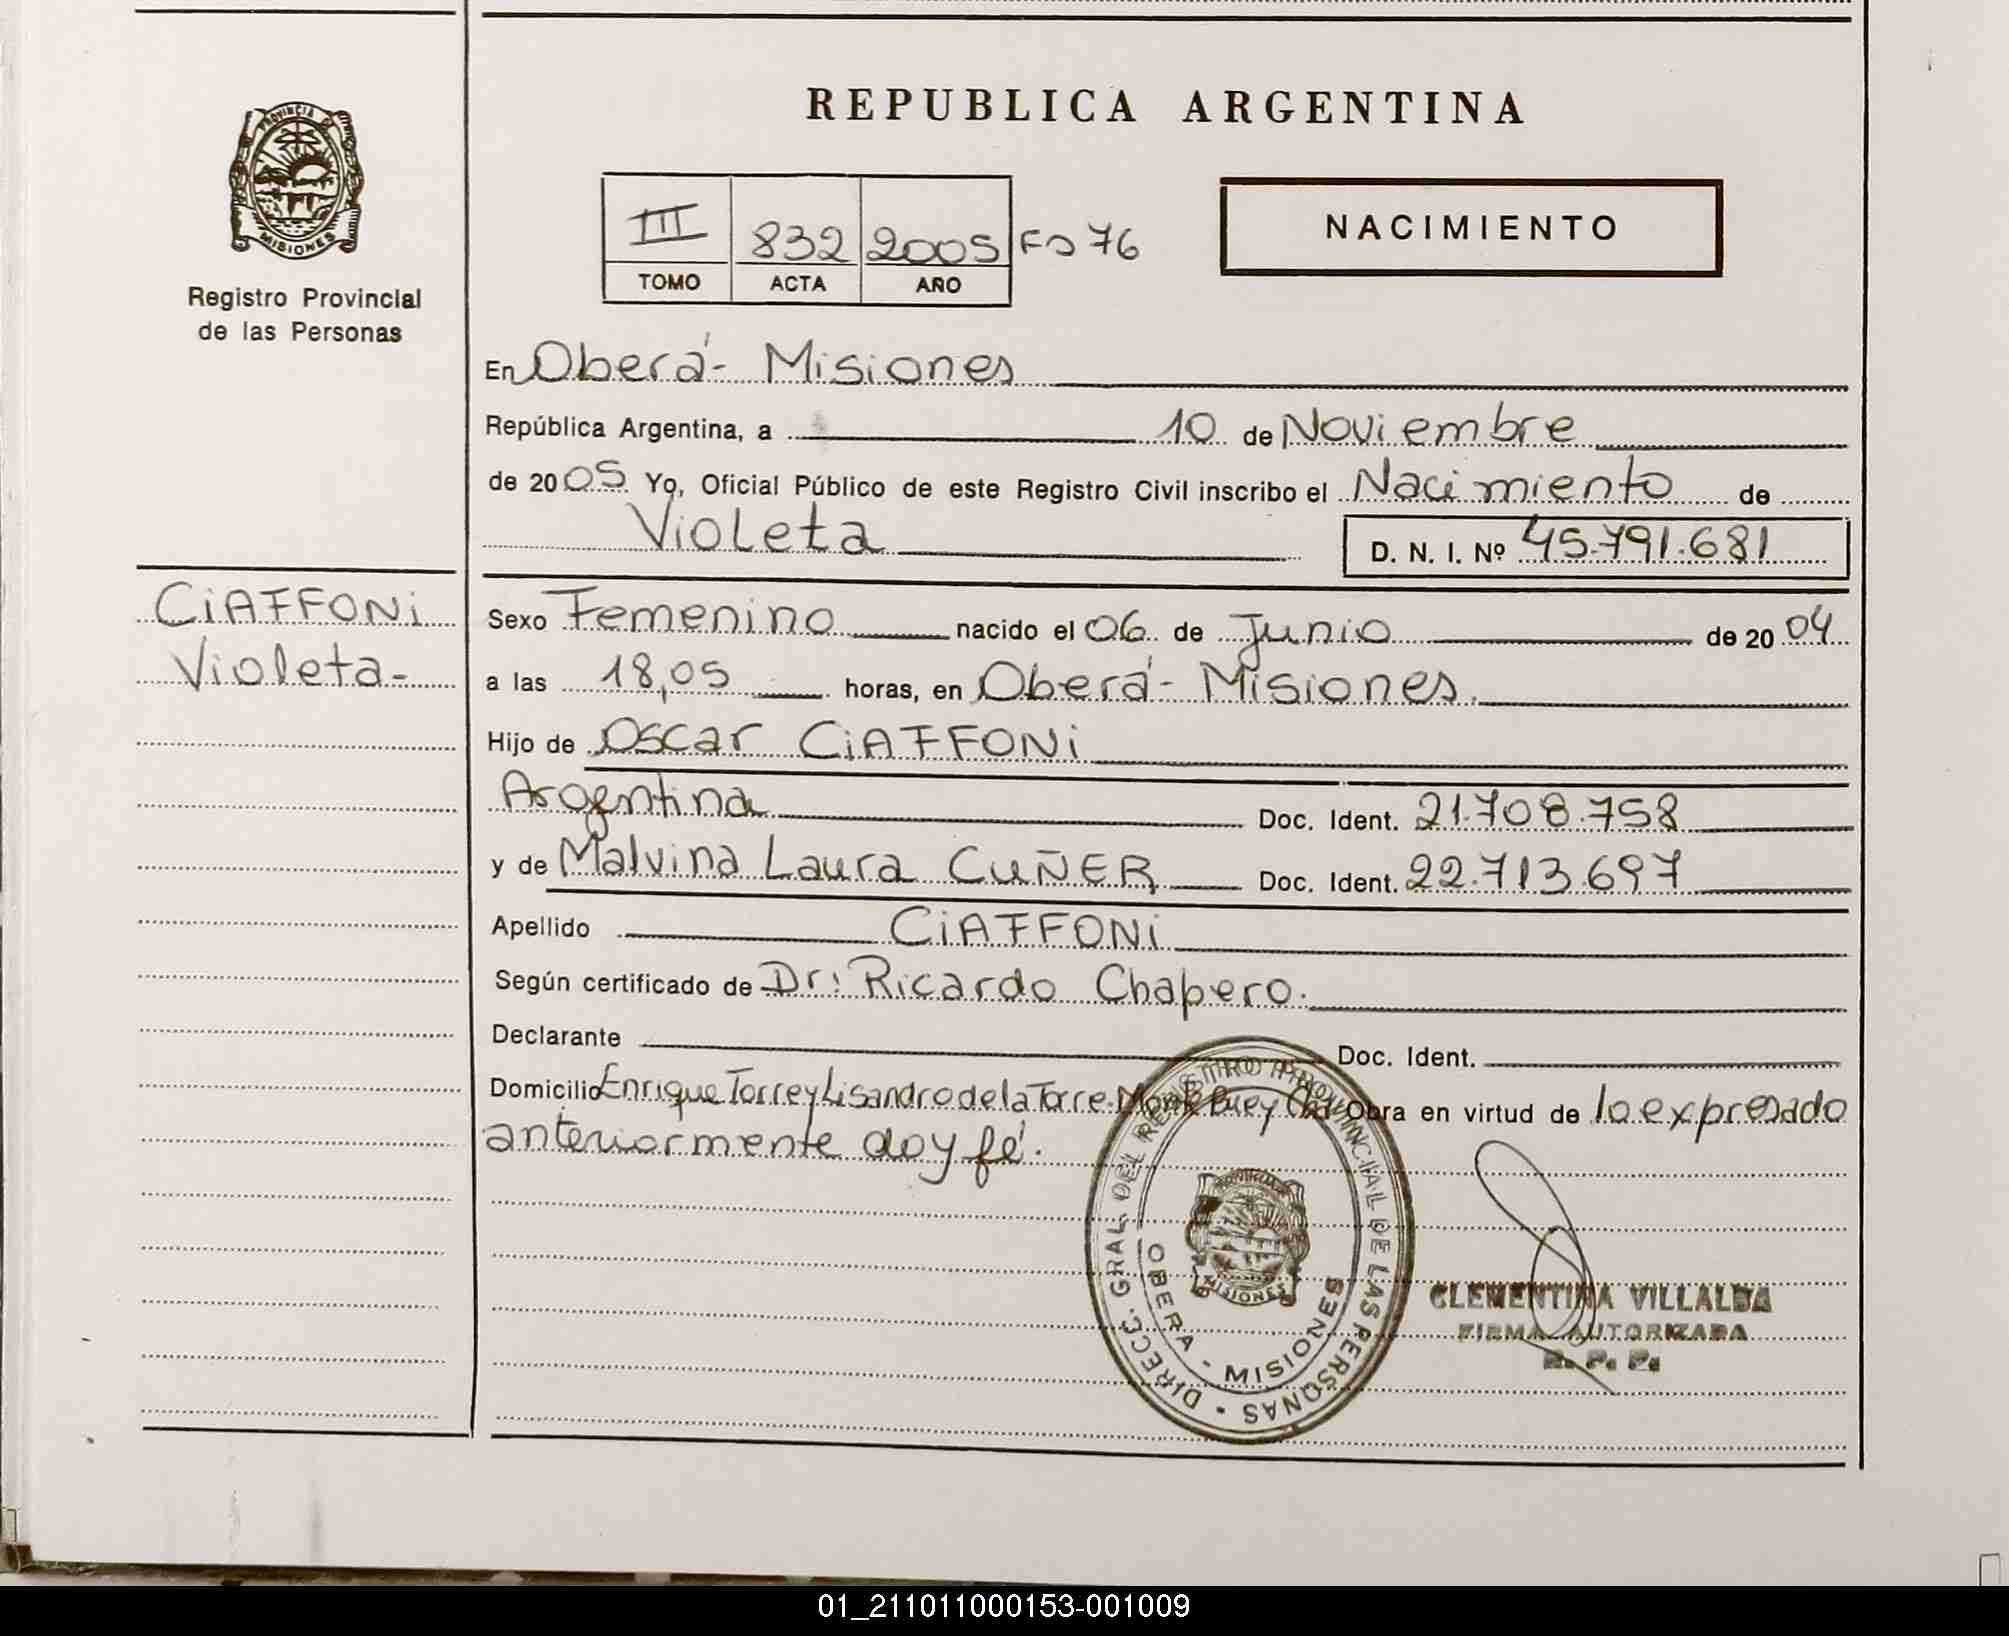 REPUBLICA ARGENTINA
PROVINCIA DE MISIONES
Registro Provincial
de las Personas
III 832 2005 Fº 76
TOMO ACTA AÑO
NACIMIENTO
En Oberá - Misiones
República Argentina, a 10 de Noviembre
de 2005 Yo, Oficial Público de este Registro Civil inscribo el Nacimiento de
Violeta D. N. I. Nº 45.791.681
CiAFFONi
Violeta-
Sexo Femenino nacido el 06 de Junio de 2004
a las 18,05 horas, en Oberá - Misiones.
Hijo de Oscar CiAFFONi
Argentina Doc. Ident. 21.708.758
y de Malvina Laura CUÑER Doc. Ident. 22.713.697
Apellido CiAFFONi
Según certificado de Dr: Ricardo Chapero.
Declarante Doc. Ident.
Domicilio Enrique Torre y Lisandro de la Torre. Obra en virtud de lo expresado
anteriormente doy fé.
DIRECC. GRAL. DEL REGISTRO PROVINCIAL DE LAS PERSONAS
OBERA - MISIONES
CLEMENTINA VILLALBA
FIRMA AUTORIZADA
R. P. P.
01_211011000153-001009